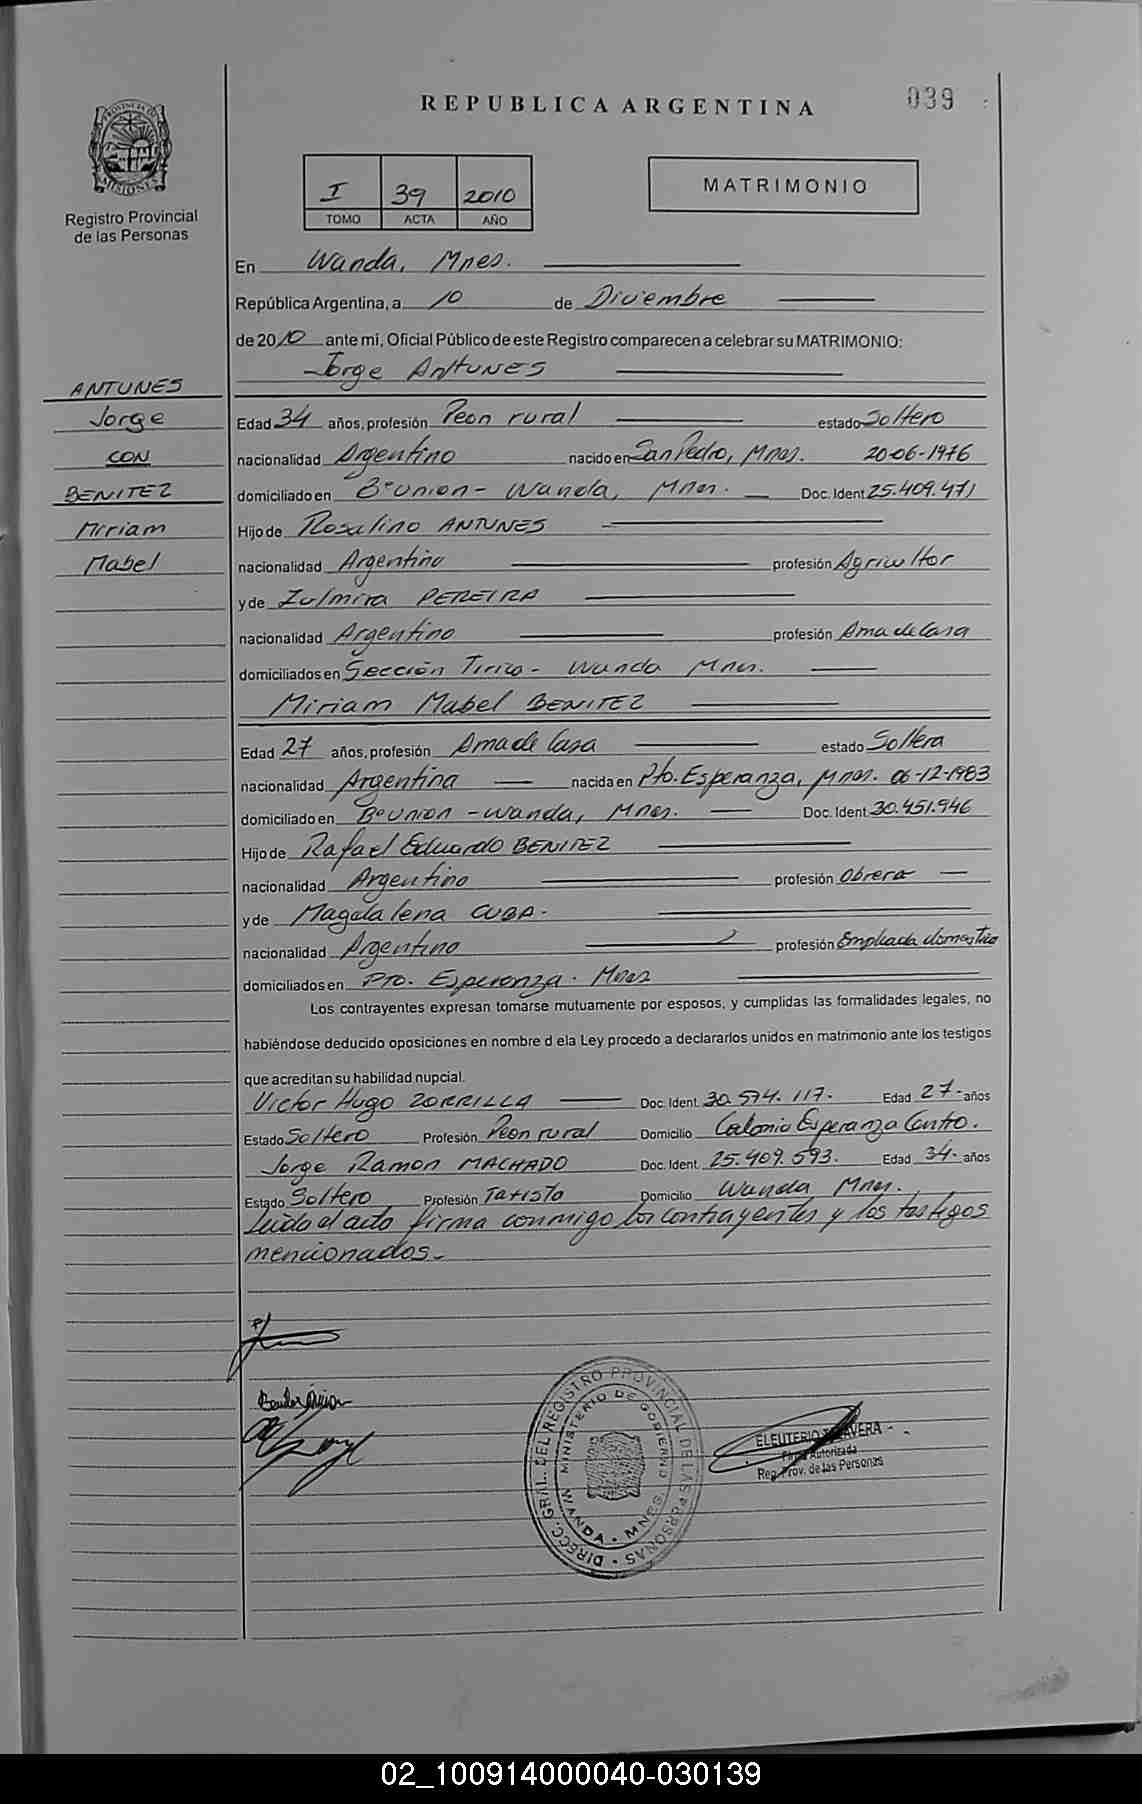 REPUBLICA ARGENTINA
039
PROVINCIA DE MISIONES
Registro Provincial
de las Personas
I 39 2010
TOMO ACTA AÑO
MATRIMONIO
En Wanda, Mnes.
República Argentina, a 10 de Diciembre
de 2010 ante mi, Oficial Público de este Registro comparecen a celebrar su MATRIMONIO:
Jorge ANTUNES
ANTUNES
Jorge
CON
BENITEZ
Miriam
Mabel
Edad 34 años, profesión Peon rural estado Soltero
nacionalidad Argentino nacido en San Pedro, Mnes. 20-06-1976
domiciliado en B° Union - Wanda, Mnes. Doc. Ident 25.409.471
Hijo de Rosalino ANTUNES
nacionalidad Argentino profesión Agricultor
y de Zulmira PEREIRA
nacionalidad Argentino profesión Ama de Casa
domiciliados en Sección - Wanda Mnes.
Miriam Mabel BENITEZ
Edad 27 años, profesión Ama de Casa estado Soltera
nacionalidad Argentina nacida en Pto. Esperanza, Mnes. 06-12-1983
domiciliado en B° Union - Wanda, Mnes. Doc. Ident 30.451.946
Hijo de Rafael Eduardo BENITEZ
nacionalidad Argentino profesión Obrero
y de Magdalena CUBA.
nacionalidad Argentino profesión Empleada domestica
domiciliados en Pto. Esperanza - Mnes
Los contrayentes expresan tomarse mutuamente por esposos, y cumplidas las formalidades legales, no
habiéndose deducido oposiciones en nombre d ela Ley procedo a declararlos unidos en matrimonio ante los testigos
que acreditan su habilidad nupcial.
Victor Hugo ZORRILLA Doc. Ident. 30.574.117. Edad 27 años
Estado Soltero Profesión Peon rural Domicilio Colonia Esperanza Centro.
Jorge Ramon MACHADO Doc. Ident. 25.409.593. Edad 34 años
Estado Soltero Profesión Domicilio Wanda Mnes.
Leido el acto firma conmigo los contrayentes y los testigos
mencionados.-
DIRECC. GRAL. DEL REGISTRO PROVINCIAL DE LAS PERSONAS
MINISTERIO DE GOBIERNO
WANDA - MNES.
ELEUTERIO
Firma Autorizada
Reg. Prov. de las Personas
02_100914000040-030139